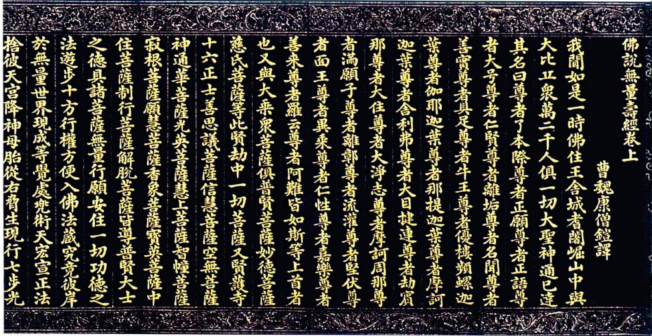 佛說無量壽經卷上
曹魏康僧鎧譯
我聞如是一時佛住王舍城耆闍崛山中與
大比丘衆萬二千人俱一切大聖神通已達
其名曰尊者了本際尊者正願尊者正語尊
者大号尊者仁賢尊者離垢尊者名聞尊者
善實尊者具足尊者牛王尊者優樓頻蠡迦
葉尊者伽耶迦葉尊者那提迦葉尊者摩訶
迦葉尊者舍利弗尊者大目揵連尊者劫賓
那尊者大住尊者大淨志尊者摩訶周那尊
者滿願子尊者離鄣尊者流灌尊者堅伏尊
者面王尊者異乘尊者仁性尊者嘉樂尊者
善來尊者羅云尊者阿難皆如斯等上首者
也又與大乘衆菩薩俱普賢菩薩妙德菩薩
慈氏菩薩等此賢劫中一切菩薩又賢護等
十六正士善思議菩薩信慧菩薩空無菩薩
神通華菩薩光英菩薩慧上菩薩智幢菩薩
寂根菩薩願慧菩薩香象菩薩寶英菩薩中
住菩薩制行菩薩解脫菩薩皆遵普賢大士
之德具諸菩薩無量行願安住一切功德之
法遊步十方行權方便入佛法藏究竟彼岸
於無量世界現成等覺處兜術天宏宣正法
捨彼天宮降神母胎從右脅生現行七步光